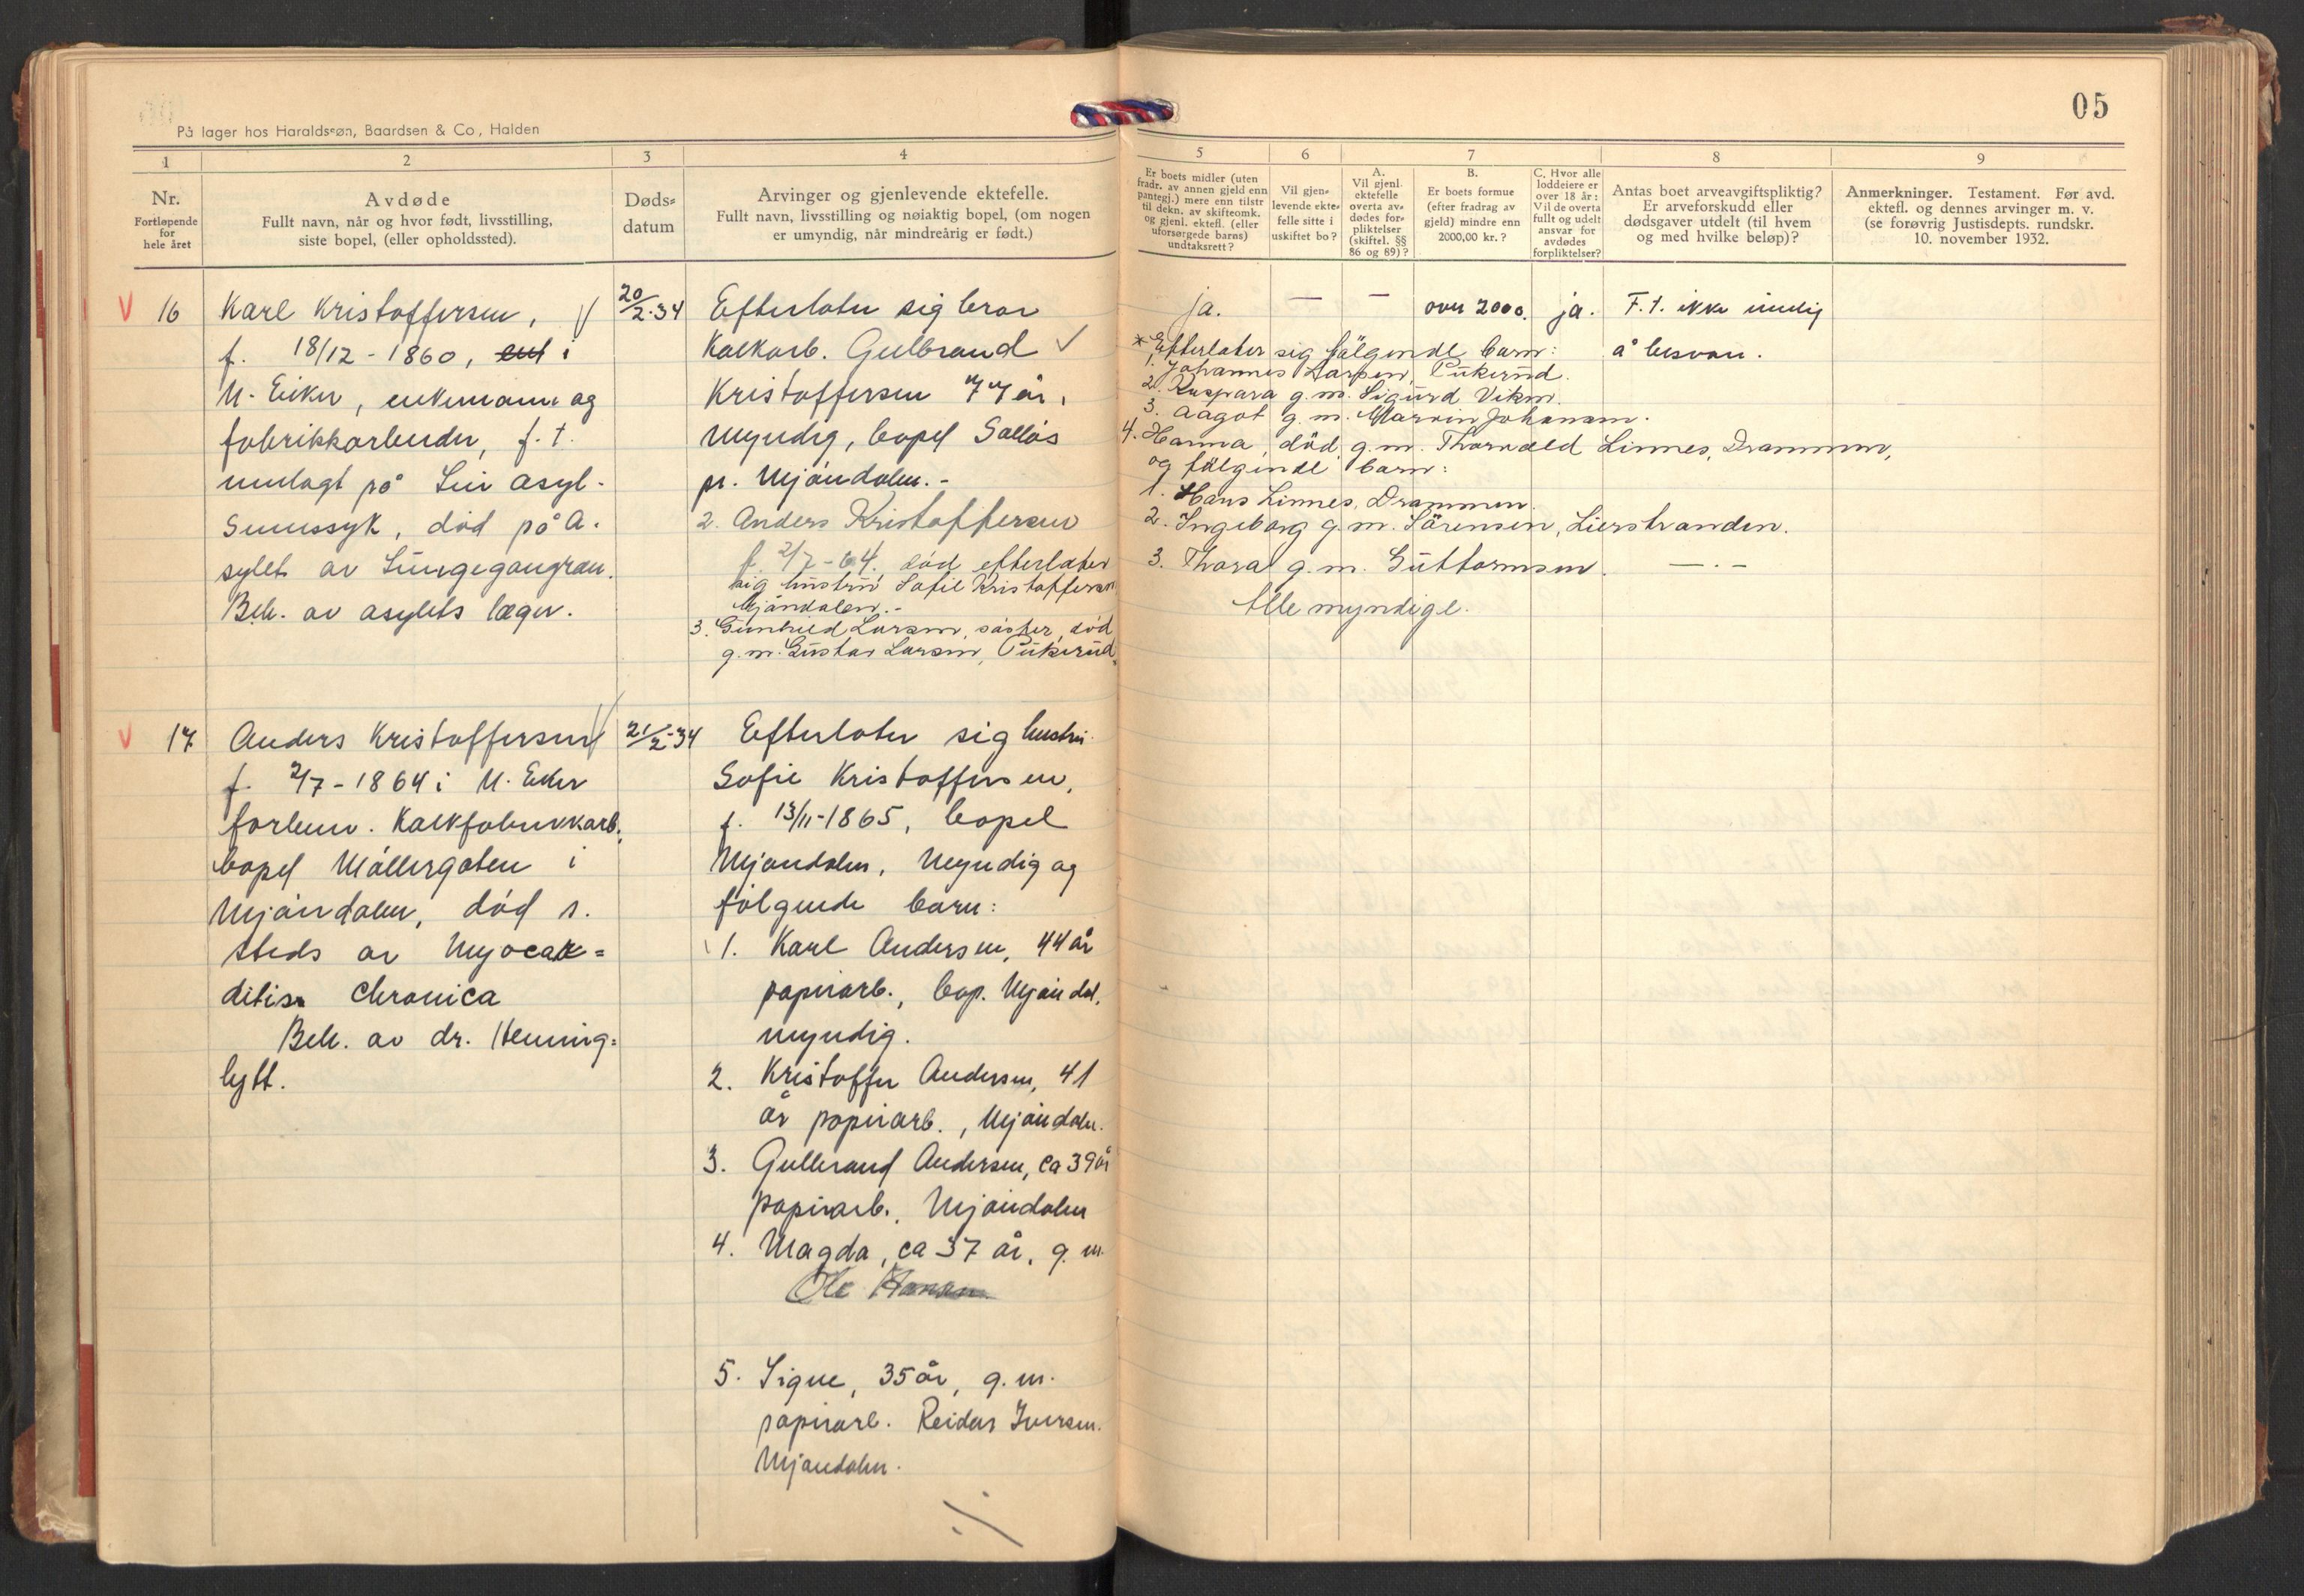 05
På lager hos Haraldssøn, Baardsen & Co., Halden
1
Nr.
Fortløpende
for
hele året
2
Avdøde
Fullt navn, når og hvor født, livsstilling,
siste bopel, (eller opholdssted).
3
Døds-
datum
4
Arvinger og gjenlevende ektefelle.
Fullt navn, livsstilling og nøiaktig bopel, (om nogen
er umyndig, når mindreårig er født.)
5
Er boets midler (uten
fradr. av annen gjeld enn
pantegj.) mere enn tilstr
til dekn. av skifteomk.
og gjenl. ektefl. (eller
uforsørgede barns)
undtaksrett?
6
Vil gjen-
levende ekte-
felle sitte i
uskiftet bo?
7
A.
Vil gjenl.
ektefelle
overta av-
dødes for-
pliktelser
(skiftel. §§
86 og 89)?
B.
Er boets formue
(efter fradrag av
gjeld) mindre enn
2000,00 kr.?
C. Hvor alle
loddeiere er
over 18 år:
Vil de overta
fullt og udelt
ansvar for
avdødes
forpliktelser?
8
Antas boet arveavgiftspliktig?
Er arveforskudd eller
dødsgaver utdelt (til hvem
og med hvilke beløp)?
9
Anmerkninger. Testament. Før avd.
ektefl. og dennes arvinger m. v.
(se forøvrig Justisdepts. rundskr.
10. november 1932.
V 16
Karl Kristoffersen, V
f. 18/12-1860, i
N. Eiker, enkemann og
fabrikkarbeider, f. t.
innlagt på Lier asyl.
Sinnssyk, död på A.
sylet av Lungegangræn.
Beh. av asylets læger.
20/2-34
Efterlater sig bror
Kalkarb. Gulbrand V
Kristoffersen 77 år,
Myndig, bopel Sollös
pr. Mjöndalen.-
2. Anders Kristoffersen
f. 2/7-64. död efterlater
sig hustru Sofie Kristoffersen
Mjöndalen.-
3. Gunhild Larsen, söster, död
g.m. Gustav Larsen, Pukerud.
ja.
—
—
over 2000.
ja.
F. t. ikke mulig
å besvare.
* Efterlater sig fölgende barn:
1. Johannes Larsen, Pukerud.
2. Kaspara g.m. Sigurd Viken.
3. Aagot g.m. Marvin Johansen.
4. Hanna, död, g.m. Thorvald Linnes, Drammen,
og fölgende barn:
1. Hans Linnes, Drammen.
2. Ingeborg g.m. Sörensen, Lierstranden.
3. Thora g.m. Guttormsen. —.—
Alle myndige.
V 17
Anders Kristoffersen V
f. 2/7-1864 i N. Eker
forhenv. Kalkfabrikkarb.
bopel Möllergaten i
Mjöndalen, död s.
steds av Myocar=
ditis Chronica
Beh. av dr. Henning=
lytt.
21/2-34
Efterlater sig hustru
Sofie Kristoffersen,
f. 13/11-1865, bopel
Mjöndalen, Myndig og
fölgende barn:
1. Karl Andersen, 44 år
papirarb., bop. Mjöndal.
myndig.
2. Kristoffer Andersen, 41
år papirarb., Mjöndalen.
3. Gulbrand Andersen, ca 39 år
papirarb., Mjöndalen
4. Magda, ca 37 år, g. m.
Ole Hansen
5. Signe, 35 år, g. m.
papirarb. Reidar Iversen.
Mjöndalen.